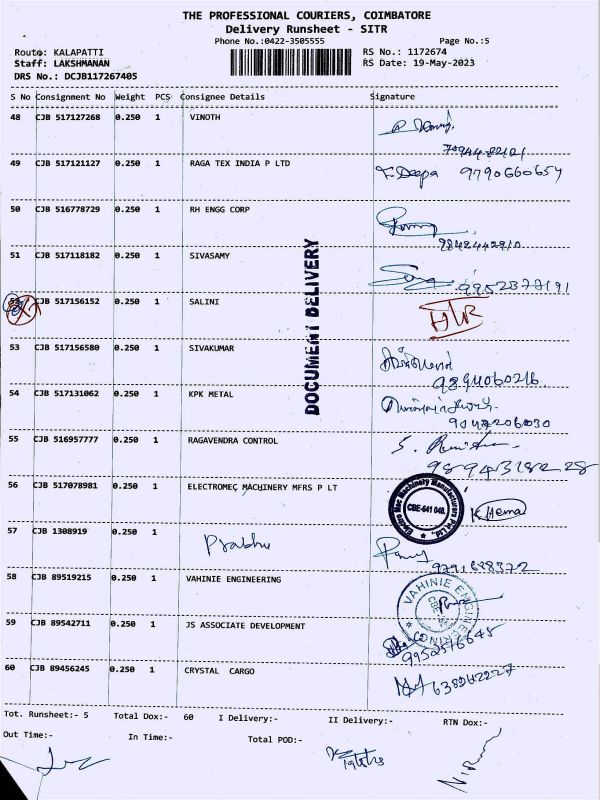 THE PROFESSIONAL COURIERS, COIMBATORE
Delivery Runsheet - SITR
Phone No.:0422-3505555 Page No.:5
Route: KALAPATTI RS No.: 1172674
Staff: LAKSHMANAN RS Date: 19-May-2023
DRS No.: DCJB117267405
S No Consignment No Weight PCS Consignee Details Signature
48 CJB 517127268 0.250 1 VINOTH
49 CJB 517121127 0.250 1 RAGA TEX INDIA P LTD
F. Deepa 9790660654
50 CJB 516778729 0.250 1 RH ENGG CORP
51 CJB 517118182 0.250 1 SIVASAMY
9952377191
CJB 517156152 0.250 1 SALINI
DOCUMENT DELIVERY
53 CJB 517156580 0.250 1 SIVAKUMAR
9894060216
54 CJB 517131062 0.250 1 KPK METAL
9047206030
55 CJB 516957777 0.250 1 RAGAVENDRA CONTROL
56 CJB 517078981 0.250 1 ELECTROMEC MACHINERY MFRS P LT
Electro Mec Machinery Manufacturers Pvt Ltd.,
CBE-641 048.
K. Hema
57 CJB 1308919 0.250 1 Prabhu
9791688372
58 CJB 89519215 0.250 1 VAHINIE ENGINEERING
VAHINIE ENGINEERING
59 CJB 89542711 0.250 1 JS ASSOCIATE DEVELOPMENT
9950516645
60 CJB 89456245 0.250 1 CRYSTAL CARGO
Tot. Runsheet:- 5 Total Dox:- 60 I Delivery:- II Delivery:- RTN Dox:-
Out Time:- In Time:- Total POD:-